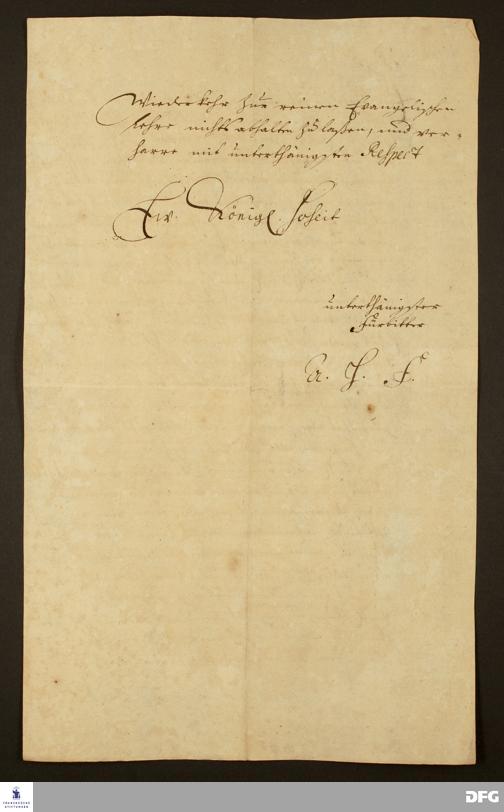 Wiederkehr zur reinen Evangelischen
lehre nichts abhalten zu laßen, und ver-
harre mit unterthänigsten Respect
Ew. Königl. Hoheit
unterthänigster
Fürbitter
A. H. F.
FRANCKESCHE
STIFTUNGEN
DFG